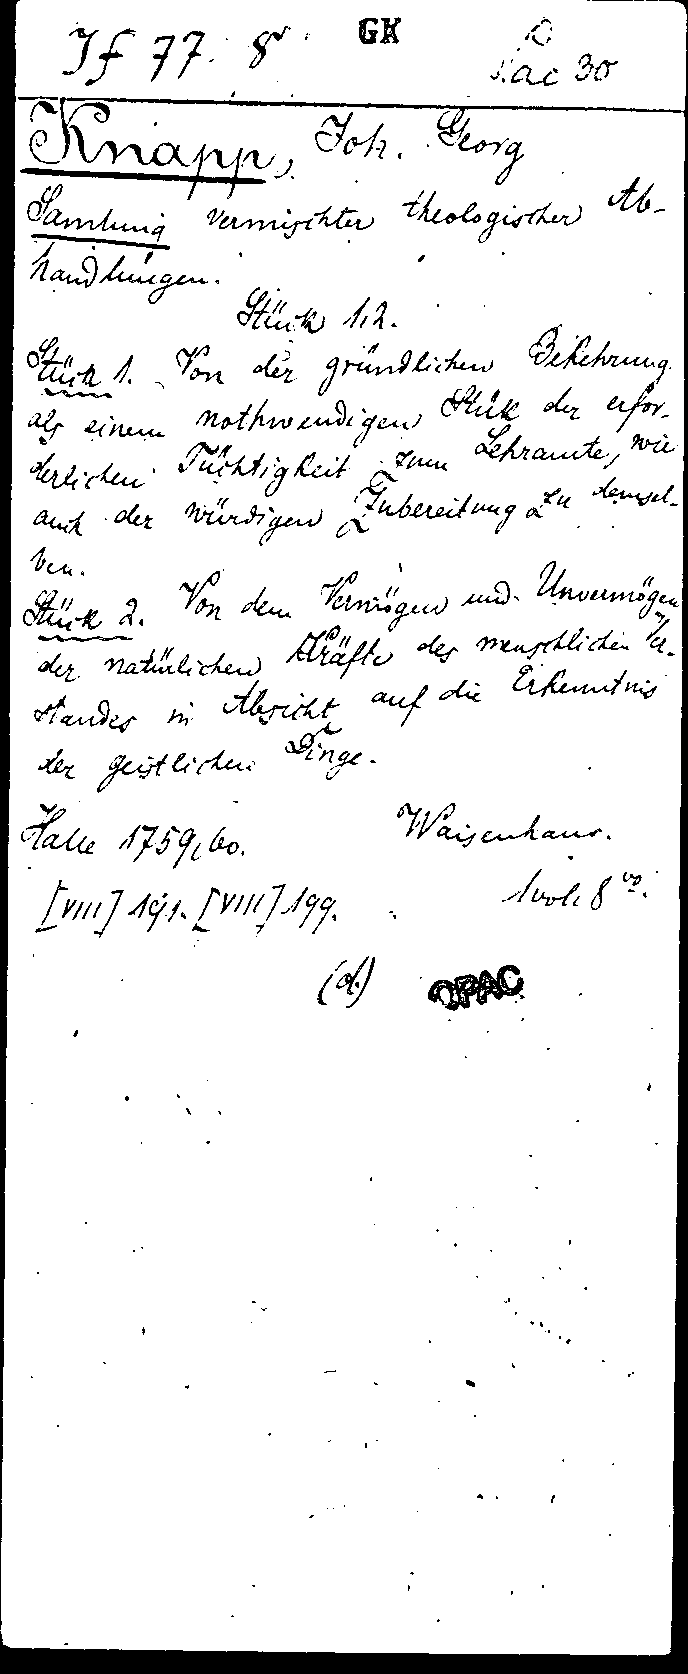 If 77. 8° GK
ac 30
Knapp, Joh. Georg
Samlung vermischter theologischer Ab-
handlungen.
Stück 1.2.
Stück 1. Von der gründlichen Bekehrung
als einem nothwendigen Stük der erfor-
derlichen Tüchtigkeit zum Lehramte, wie
auch der würdigen Zubereitung zu demsel-
ben.
Stück 2. Von dem Vermögen und Unvermögen
der natürlichen Kräfte des menschlichen Ver-
standes in Absicht auf die Erkenntnis
der geistlichen Dinge.
Halle 1759,60. Waisenhaus.
[VIII] 191. [VIII] 199. 1 vol. 8vo.
(d.) OPAC